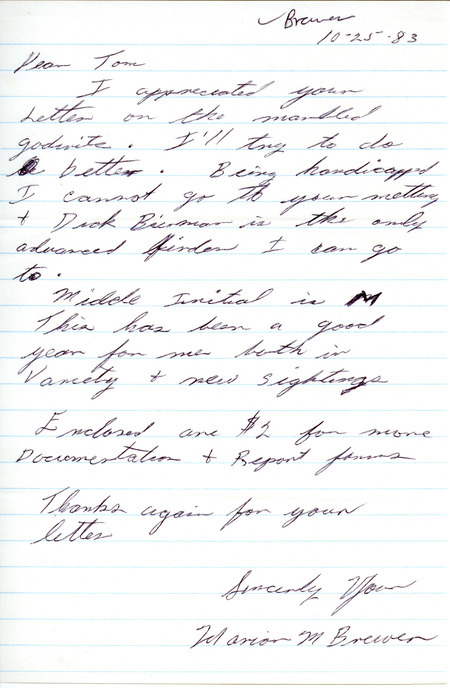 ✓Brewer
10-25-83
Dear Tom
I appreciated your
Letter on the marbled
godwits. I'll try to do
better. Being handicapped
I cannot go to your metting
+ Dick Bierman is the only
advanced birder I can go
to.
Middle Initial is M
This has been a good
year for me both in
Variety + new sightings
Enclosed are $2 for more
Documentation + Report forms
Thanks again for your
letter
Sincerly Your
Marion M Brewer